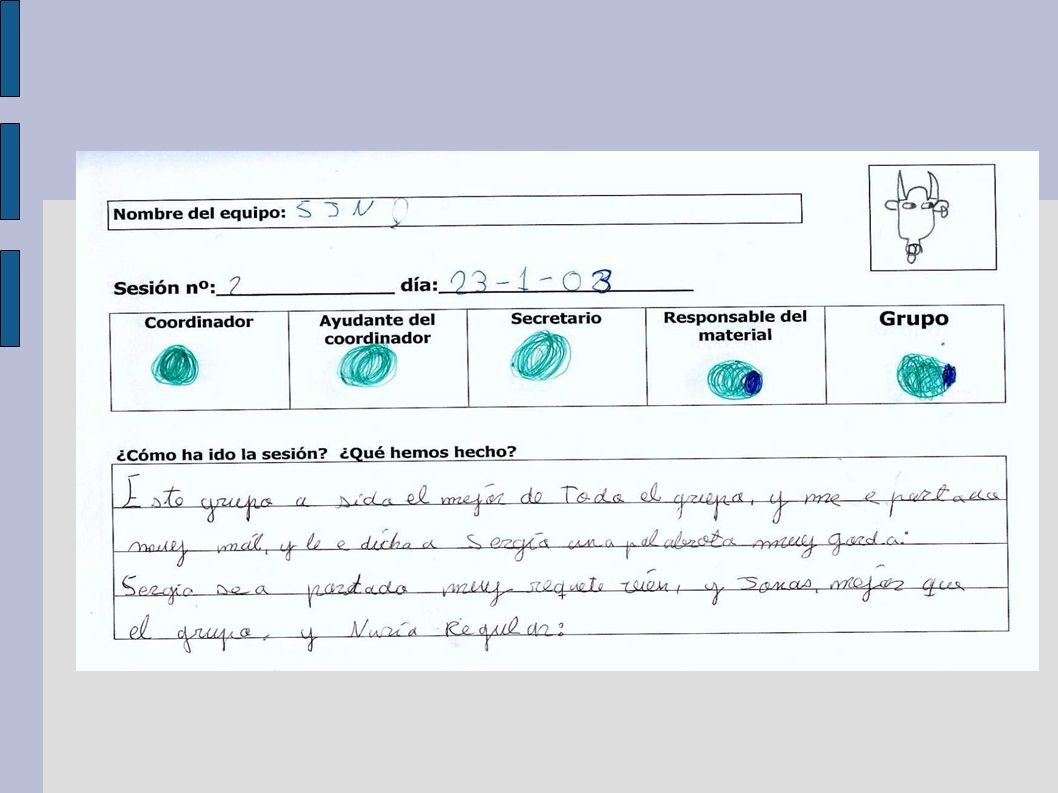 Nombre del equipo: S J N
Sesión nº: 2 día: 23-1-03
Coordinador Ayudante del coordinador Secretario Responsable del material Grupo
¿Cómo ha ido la sesión? ¿Qué hemos hecho?
Este grupo a sido el mejor de Todo el grupo, y me e portado
muy mál, y le e dicha a Sergio una palabrota muy gorda:
Sergio se a portado muy requete vién, y Jonas, mejor que
el grupo, y Nuria Regular: